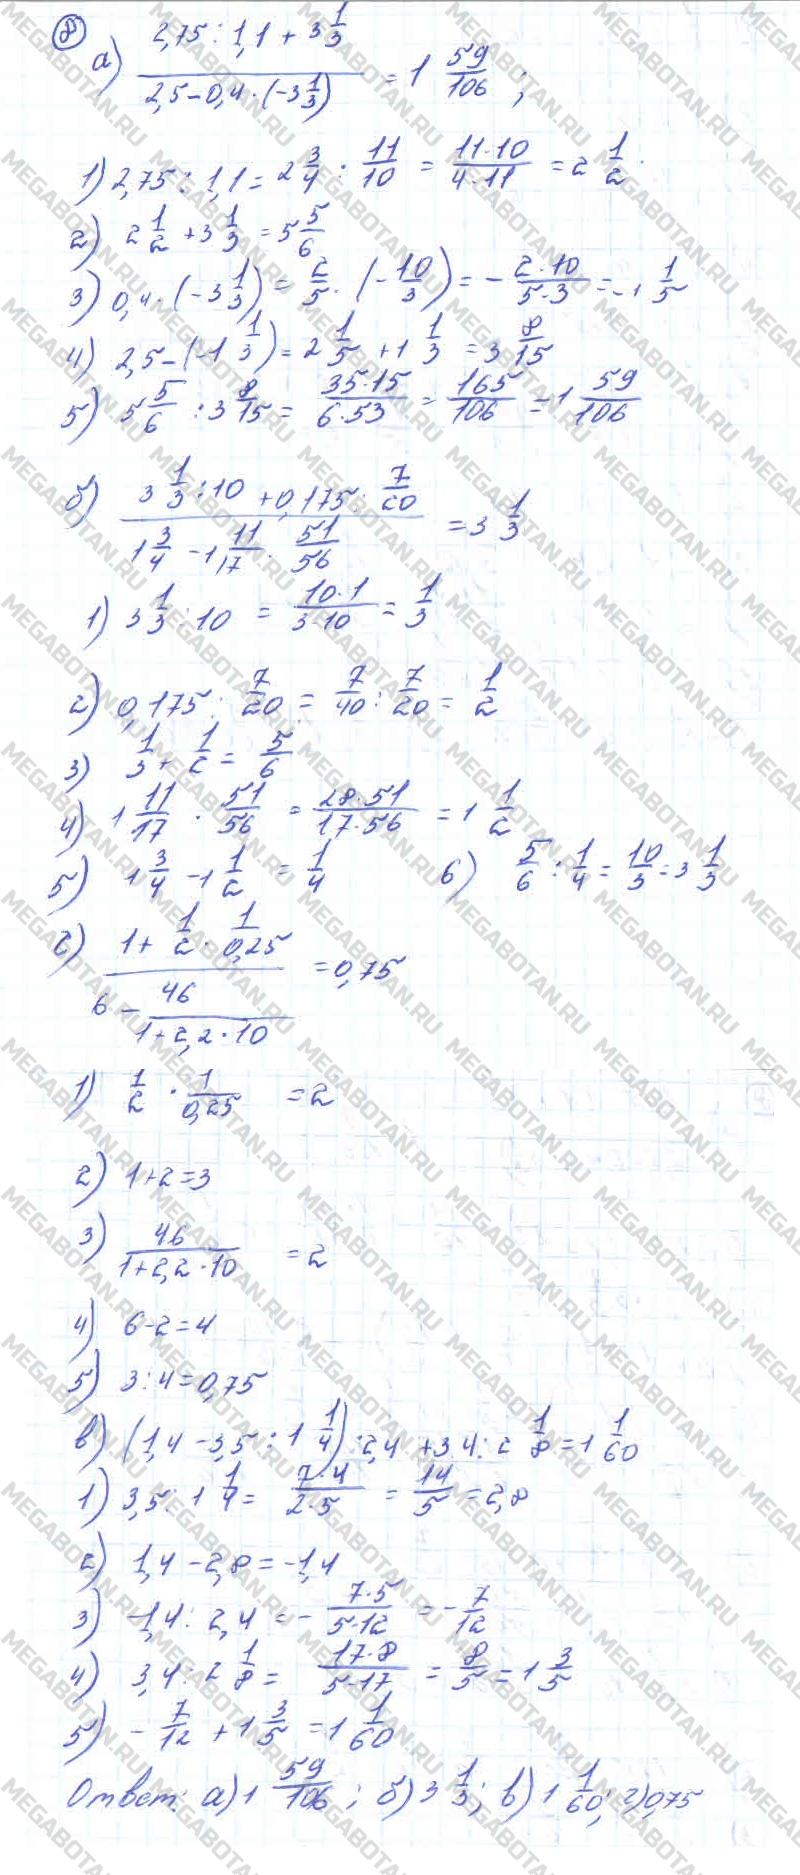 8
а) (2,75 : 1,1 + 3 1/3) / (2,5 - 0,4 · (-3 1/3)) = 1 59/106 ;
1) 2,75 : 1,1 = 2 3/4 : 11/10 = 11·10/4·11 = 2 1/2 .
2) 2 1/2 + 3 1/3 = 5 5/6
3) 0,4 · (-3 1/3) = 2/5 · (-10/3) = - 2·10/5·3 = -1 1/5
4) 2,5 - (-1 1/3) = 2 1/5 + 1 1/3 = 3 8/15
5) 5 5/6 : 3 8/15 = 35·15/6·53 = 165/106 = 1 59/106
б) (3 1/3 : 10 + 0,175 : 7/20) / (1 3/4 - 1 11/17 · 51/56) = 3 1/3
1) 3 1/3 : 10 = 10·1/3·10 = 1/3
2) 0,175 : 7/20 = 7/40 : 7/20 = 1/2
3) 1/3 + 1/2 = 5/6
4) 1 11/17 · 51/56 = 28·51/17·56 = 1 1/2
5) 1 3/4 - 1 1/2 = 1/4 6) 5/6 : 1/4 = 10/3 = 3 1/3
г) (1 + 1/2 · 1/0,25) / (6 - 46/(1+2,2·10)) = 0,75
1) 1/2 · 1/0,25 = 2
2) 1+2=3
3) 46/(1+2,2·10) = 2
4) 6-2=4
5) 3:4=0,75
в) (1,4 - 3,5 : 1 1/4) : 2,4 + 3,4 : 2 1/8 = 1 1/60
1) 3,5 : 1 1/4 = 7·4/2·5 = 14/5 = 2,8
2) 1,4 - 2,8 = -1,4
3) -1,4 : 2,4 = - 7·5/5·12 = - 7/12
4) 3,4 : 2 1/8 = 17·8/5·17 = 8/5 = 1 3/5
5) - 7/12 + 1 3/5 = 1 1/60
Ответ: а) 1 59/106 ; б) 3 1/3 ; в) 1 1/60 ; г) 0,75
MEGABOTAN.RU